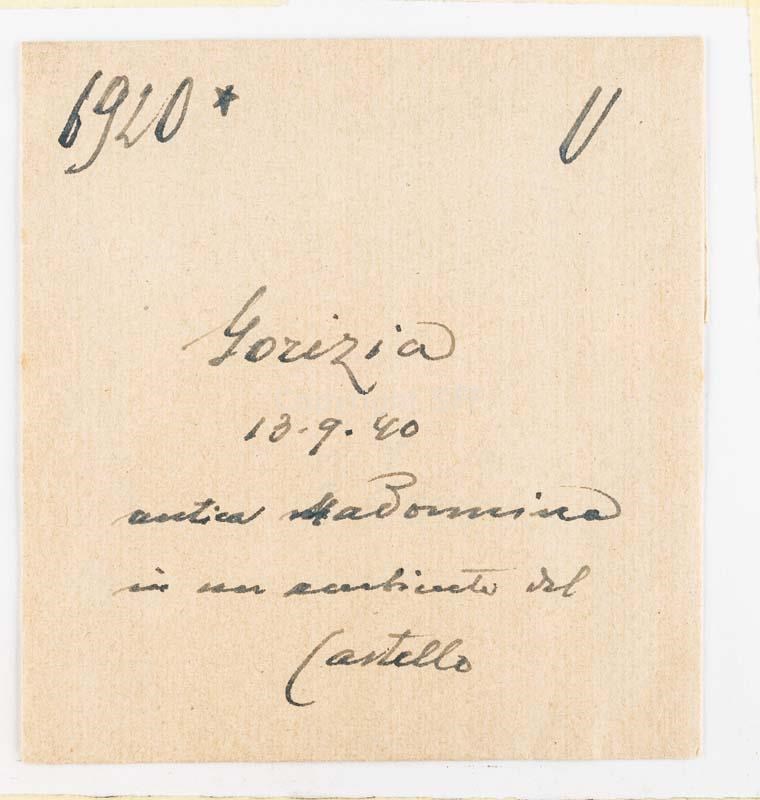 6920* V
Gorizia
13.9.40
antica Madonnina
in un ambiente del
Castello